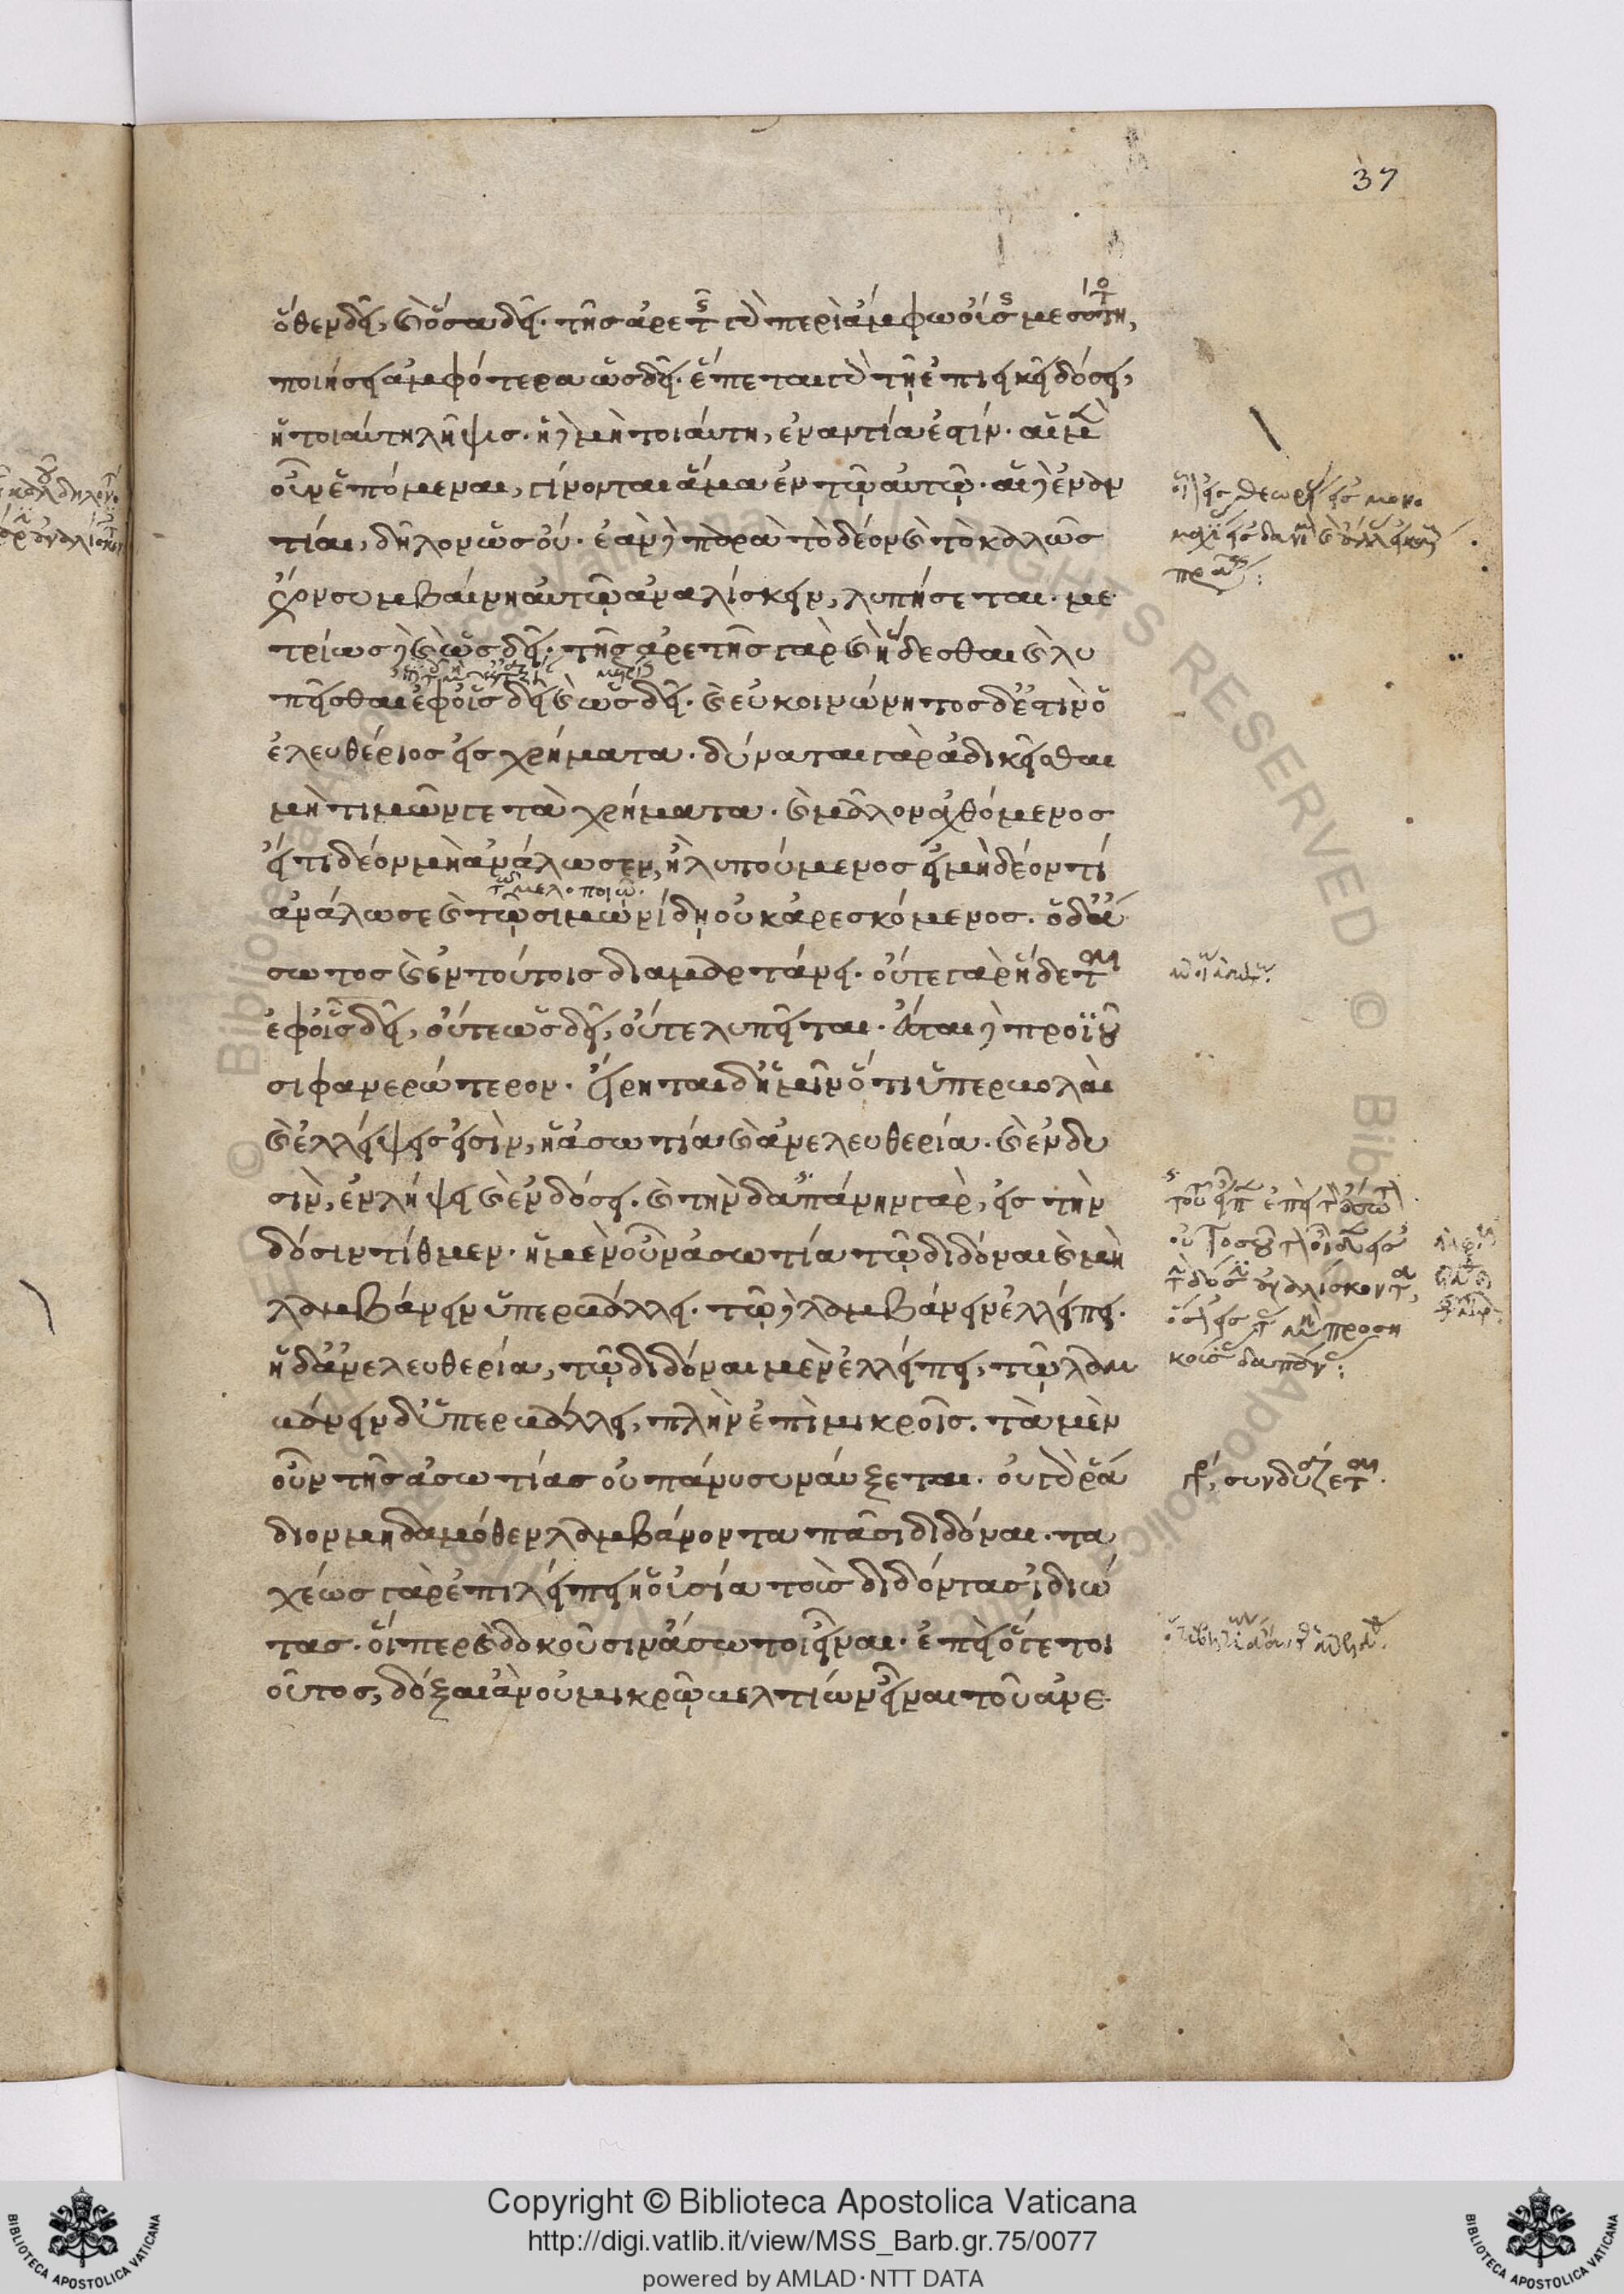 37
ὅθεν δεῖ, καὶ ὅσα δεῖ. τῆς ἀρετῆς γὰρ περὶ ἄμφω οὔσης μεσότητος,
ποιήσει ἀμφότερα ὡς δεῖ. ἕπεται γὰρ τῇ ἐπιεικεῖ δόσει,
ἡ τοιαύτη λῆψις. ἡ δὲ μὴ τοιαύτη, ἐναντία ἐστίν. αἱ μὲν
οὖν ἑπόμεναι, γίνονται ἅμα ἐν τῷ αὐτῷ. αἱ δ' ἐναν
τίαι, δῆλον ὡς οὔ. ἐὰν δὲ παρὰ τὸ δέον καὶ τὸ καλῶς
ἔχον συμβαίνῃ αὐτῷ ἀναλίσκειν, λυπήσεται. με
τρίως δὲ καὶ ὡς δεῖ. τῆς ἀρετῆς γὰρ καὶ ἥδεσθαι καὶ λυ
πεῖσθαι ἐφ' οἷς δεῖ καὶ ὡς δεῖ. καὶ εὐκοινώνητος δ' ἐστὶν ὁ
ἐλευθέριος εἰς χρήματα. δύναται γὰρ ἀδικεῖσθαι
μὴ τιμῶν γε τὰ χρήματα. καὶ μᾶλλον ἀχθόμενος
εἴ τι δέον μὴ ἀνάλωσεν, ἢ λυπούμενος εἰ μὴ δέον τί
τῷ μελοποιῷ.
ἀνάλωσε καὶ τῷ σιμωνίδῃ οὐκ ἀρεσκόμενος. ὁ δ' ἄ
σωτος καὶ ἐν τούτοις διαμαρτάνει. οὔτε γὰρ ἥδεται
ἐφ' οἷς δεῖ, οὔτε ὡς δεῖ, οὔτε λυπεῖται. ἔσται δὲ προϊοῦ
σι φανερώτερον. εἴρηται δ' ἡμῖν ὅτι ὑπερβολαὶ
καὶ ἐλλείψεις εἰσὶν, ἡ ἀσωτία καὶ ἀνελευθερία. καὶ ἐν δυ
σὶν, ἐν λήψει καὶ ἐν δόσει. καὶ τὴν δαπάνην γὰρ, εἰς τὴν
δόσιν τίθεμεν. ἡ μὲν οὖν ἀσωτία τῷ διδόναι καὶ μὴ
λαμβάνειν ὑπερβάλλει. τῷ δὲ λαμβάνειν ἐλλείπει.
ἡ δ' ἀνελευθερία, τῷ διδόναι μὲν ἐλλείπει, τῷ λαμ
βάνειν δ' ὑπερβάλλει, πλὴν ἐπὶ μικροῖς. τὰ μὲν
οὖν τῆς ἀσωτίας οὐ πάνυ συναύξεται. οὐ γὰρ ῥᾴ
διον μηδαμόθεν λαμβάνοντα πᾶσι διδόναι. τα
χέως γὰρ ἐπιλείπει ἡ οὐσία τοὺς διδόντας ἰδιώ
τας. οἵπερ καὶ δοκοῦσιν ἄσωτοι εἶναι. ἐπεὶ ὅ γε τοι
οῦτος, δόξαι ἂν οὐ μικρῷ βελτίων εἶναι τοῦ ἀνε
γρ, συνδυάζεται.
Copyright © Biblioteca Apostolica Vaticana
http://digi.vatlib.it/view/MSS_Barb.gr.75/0077
powered by AMLAD·NTT DATA
BIBLIOTECA APOSTOLICA VATICANA
BIBLIOTECA APOSTOLICA VATICANA